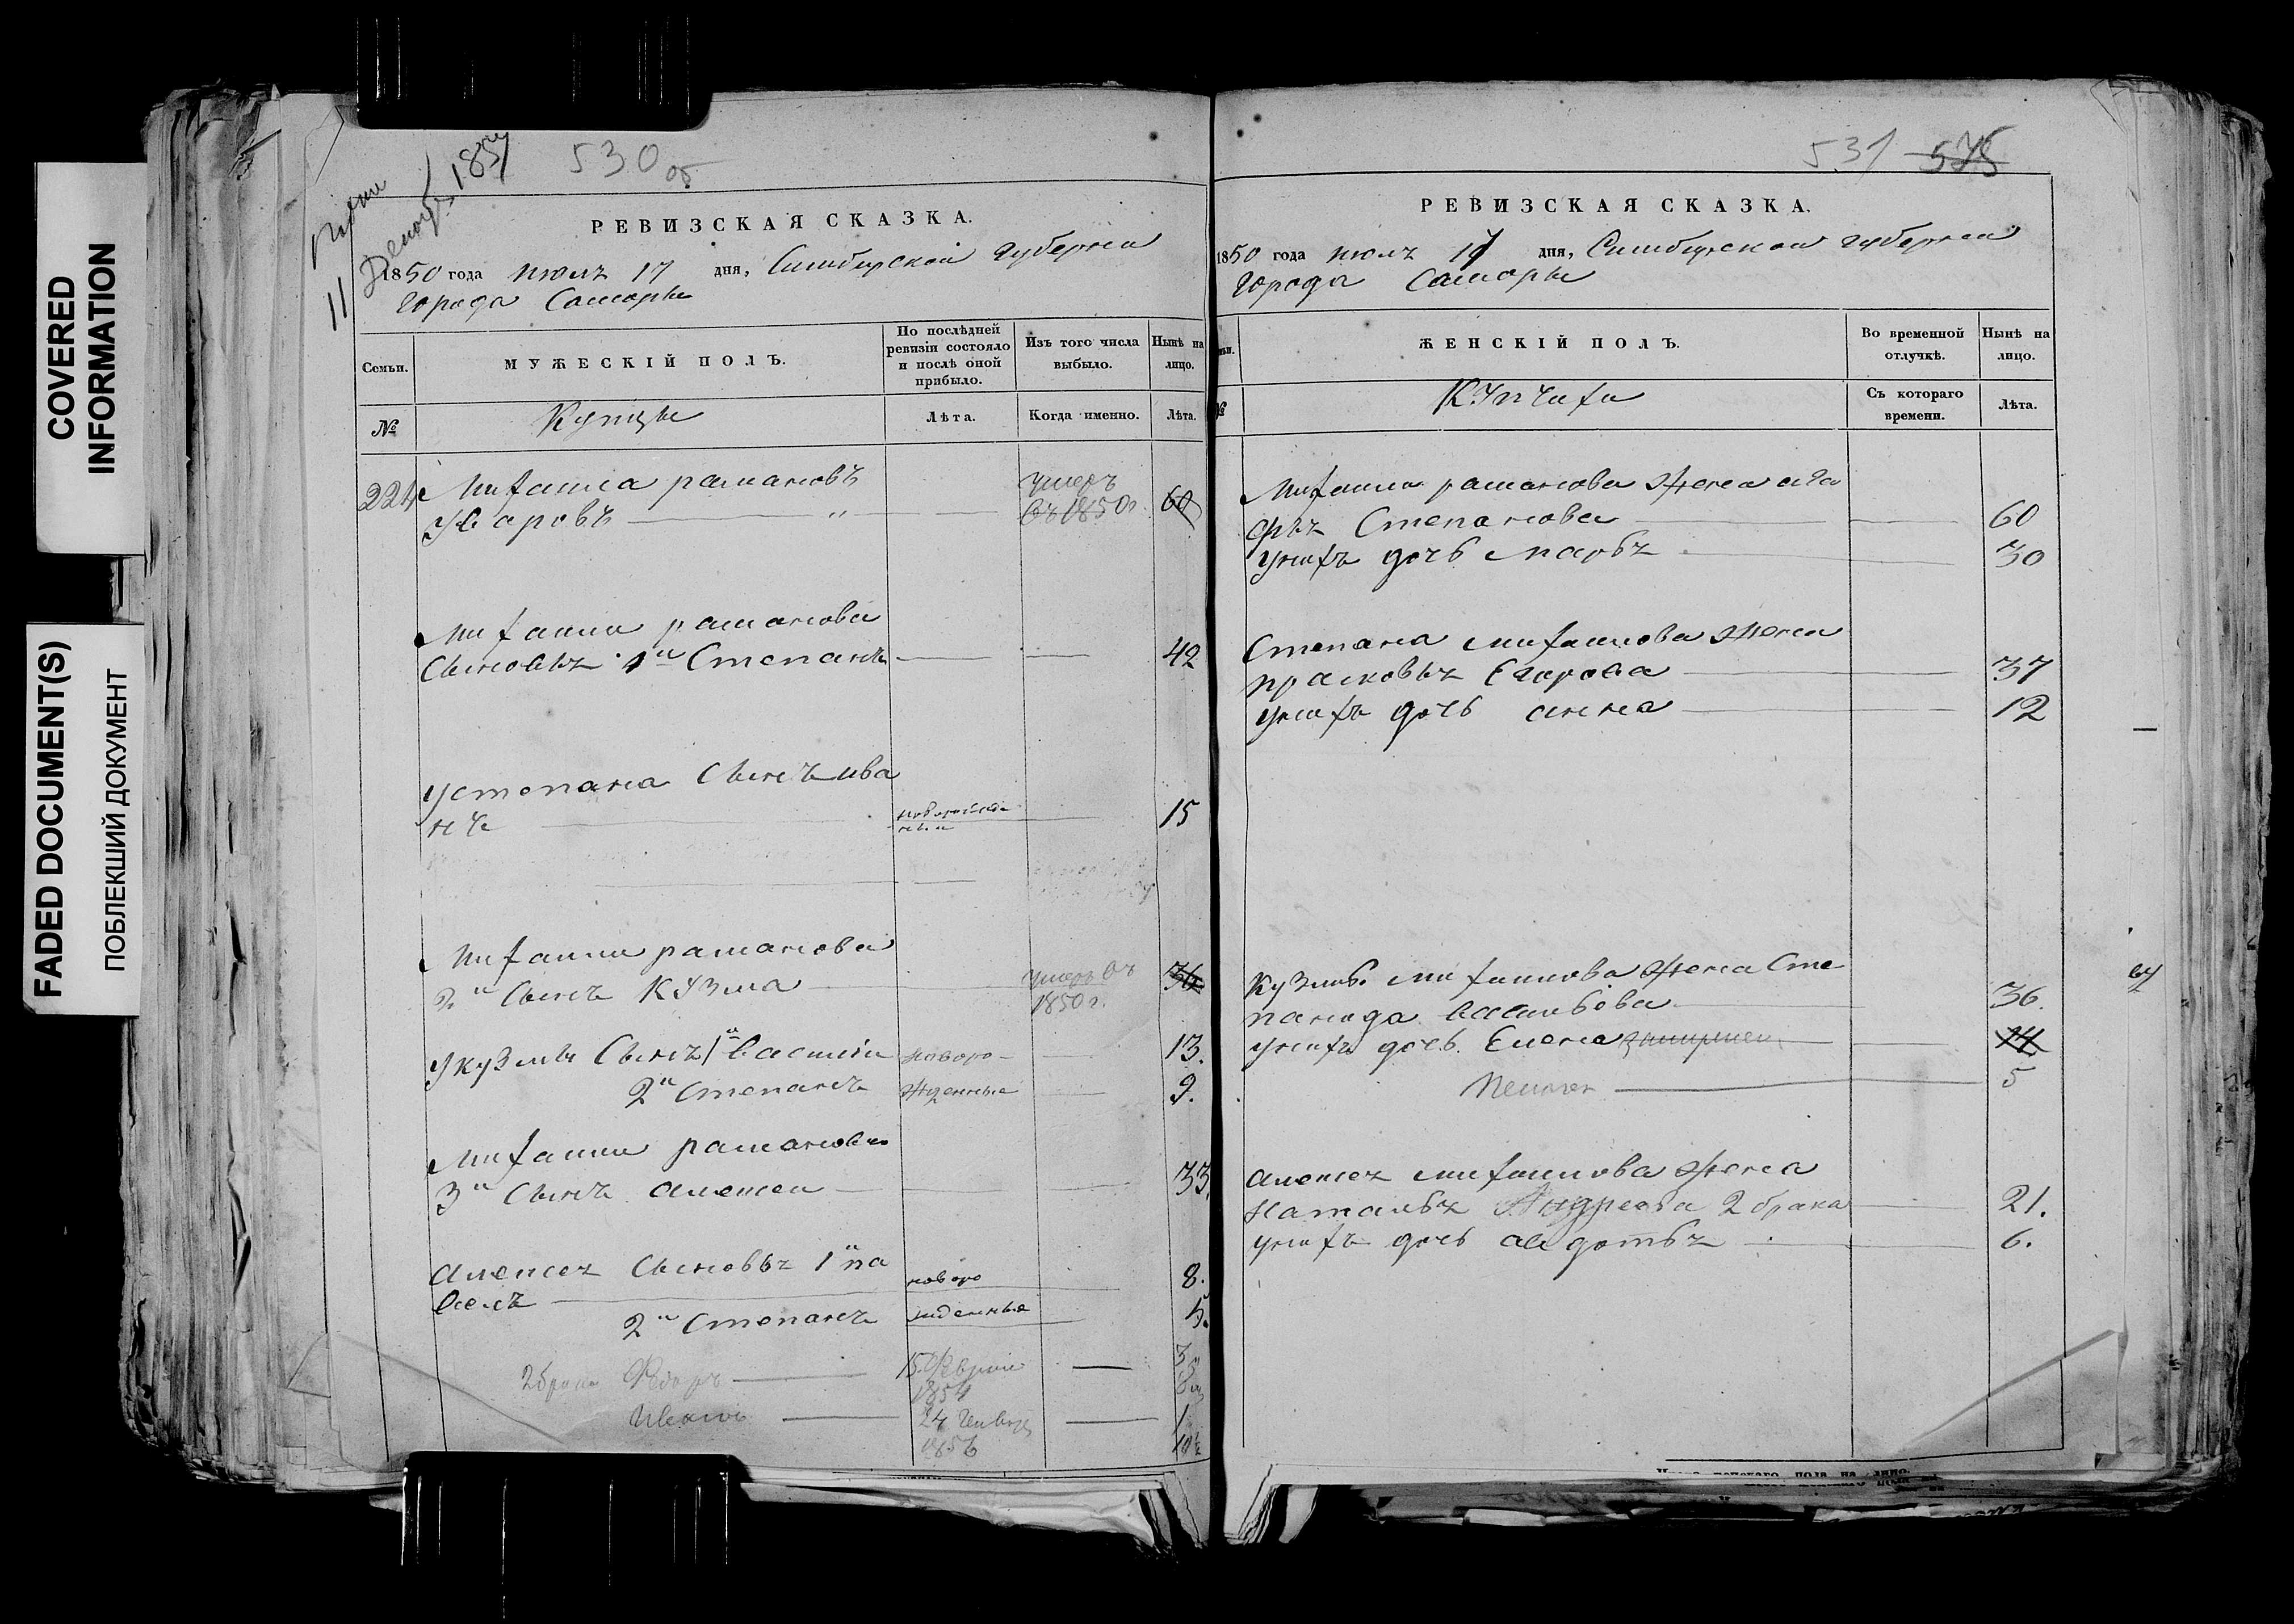 COVERED
INFORMATION
FADED DOCUMENT(S)
ПОБЛЕКШИЙ ДОКУМЕНТ
1857
11
530 об
РЕВИЗСКАЯ СКАЗКА.
1850 года июля 17 дня, Симбирской губернии
города Самары
Семьи.
МУЖЕСКІЙ ПОЛЪ.
По послѣдней
ревизіи состояло
и послѣ оной
прибыло.
Изъ того числа
выбыло.
Нынѣ на
лицо.
№
Купцы
Лѣта.
Когда именно.
Лѣта.
224 Михаила рамановъ
Уваровъ — " умеръ въ 1850г. 60
Михаилы раманова
Сыновья 1й Степанъ 42
У степана Сынъ ива
нъ новорожде
ны 15
Михаилы раманова
2й Сынъ Кузма умеръ въ
1850 г. 36
У кузмы Сынъ 1й Василiи новоро- 13.
2й Степанъ жденные 9.
Михаилы раманова
3й Сынъ алексеи 33.
алексея Сыновья 1й па
велъ новоро 8.
2й Степанъ жденныя 5.
2 брака Федоръ 15 Февраля
1854 3
Иванъ 24 1856 1
531 575
РЕВИЗСКАЯ СКАЗКА.
1850 года июля 17 дня, Симбирской губернии
города Самары
ЖЕНСКІЙ ПОЛЪ.
Во временной
отлучкѣ.
Нынѣ на
лицо.
№
Купчихи
Съ котораго
времени.
Лѣта.
Михаилы раманова жена ага
фья Степанова 60
у нихъ дочь марья 30
Степана михаилова жена
прасковья Егорова 37
у нихъ дочь анна 12
кузмы михаилова жена Сте
панида васильева 36.
у нихъ дочь Елена 14
5
алексея михаилова жена
наталья Андреева 2 брака 21.
у нихъ дочь авдотья 6.